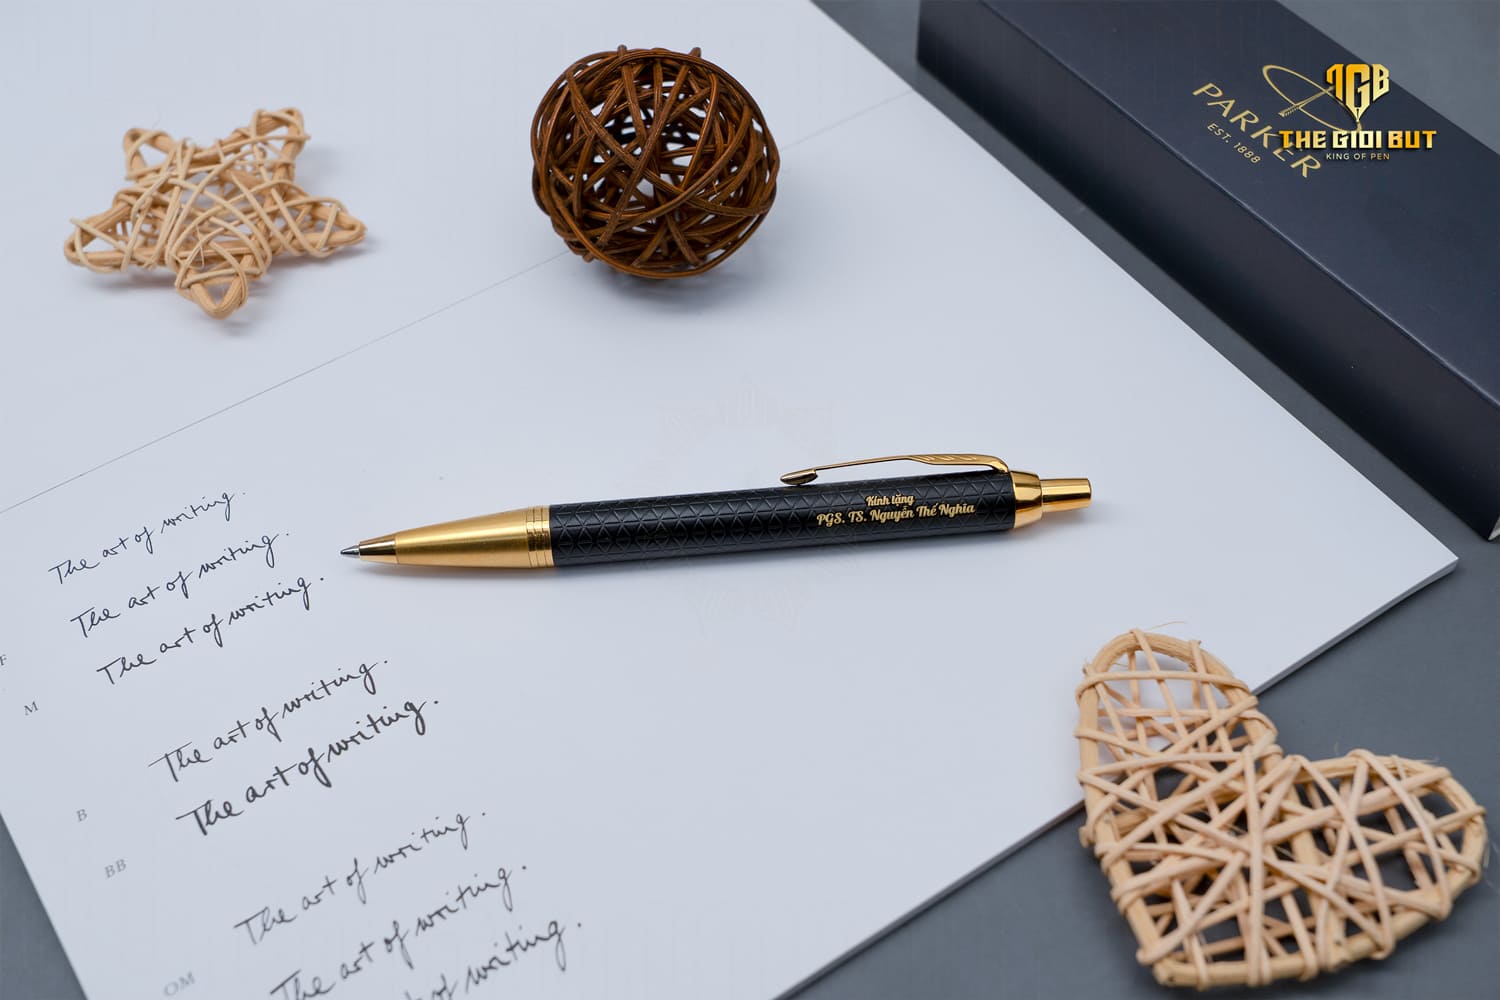 TGB
THE GIOI BUT
KING OF PEN
PARKER
EST. 1888
Kính tặng
PGS. TS. Nguyễn Thế Nghĩa
The art of writing.
The art of writing.
F
The art of writing.
M
The art of writing.
B
The art of writing.
BB
The art of writing.
The art of writing.
OM
of writing.